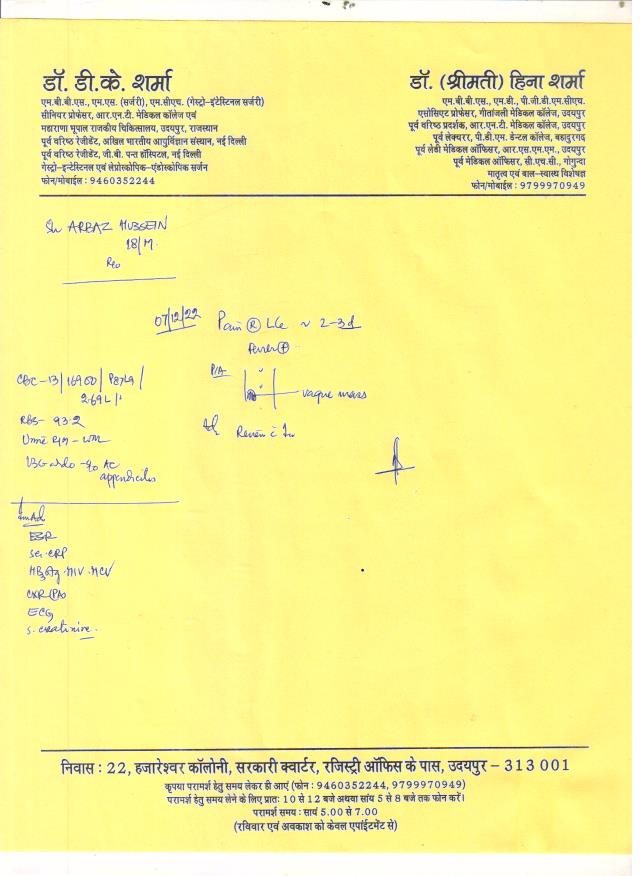 डॉ. डी.के. शर्मा
एम.बी.बी.एस., एम.एस. (सर्जरी), एम.सीएच. (गेस्ट्रो-इंटेस्टिनल सर्जरी)
सीनियर प्रोफेसर, आर.एन.टी. मेडिकल कॉलेज एवं
महाराणा भूपाल राजकीय चिकित्सालय, उदयपुर, राजस्थान
पूर्व वरिष्ठ रेजीडेंट, अखिल भारतीय आयुर्विज्ञान संस्थान, नई दिल्ली
पूर्व वरिष्ठ रेजीडेंट, जी.बी. पन्त हॉस्पिटल, नई दिल्ली
गेस्ट्रो-इन्टेस्टिनल एवं लेप्रोस्कोपिक-एंडोस्कोपिक सर्जन
फोन/मोबाईल : 9460352244
डॉ. (श्रीमती) हिना शर्मा
एम.बी.बी.एस., एम.डी., पी.जी.डी.एम.सीएच.
एसोसिएट प्रोफेसर, गीतांजली मेडिकल कॉलेज, उदयपुर
पूर्व वरिष्ठ प्रदर्शक, आर.एन.टी. मेडिकल कॉलेज, उदयपुर
पूर्व लेक्चरर, पी.डी.एम. डेन्टल कॉलेज, बहादुरगढ़
पूर्व लेडी मेडिकल ऑफिसर, आर.एस.एम.एम., उदयपुर
पूर्व मेडिकल ऑफिसर, सी.एच.सी., गोगुन्दा
मातृत्व एवं बाल-स्वास्थ्य विशेषज्ञ
फोन/मोबाईल : 9799970949
Sh ARBAZ HUSSEIN
18/M.
07/12/22 Pain Ⓡ ~ 2-3d
fever ⊕
P/A
vague mass
CBC - 13/16900/
2.69L
RBS - 93.2
Urine
AC
appendicitis
Adv
ESR
Se. CRP
HIV. HCV
CXR (PA)
ECG
S. creatinine.
निवास : 22, हजारेश्वर कॉलोनी, सरकारी क्वार्टर, रजिस्ट्री ऑफिस के पास, उदयपुर – 313 001
कृपया परामर्श हेतु समय लेकर ही आएं (फोन : 9460352244, 9799970949)
परामर्श हेतु समय लेने के लिए प्रातः 10 से 12 बजे अथवा सांय 5 से 8 बजे तक फोन करें।
परामर्श समय : सायं 5.00 से 7.00
(रविवार एवं अवकाश को केवल एपांईटमेंट से)